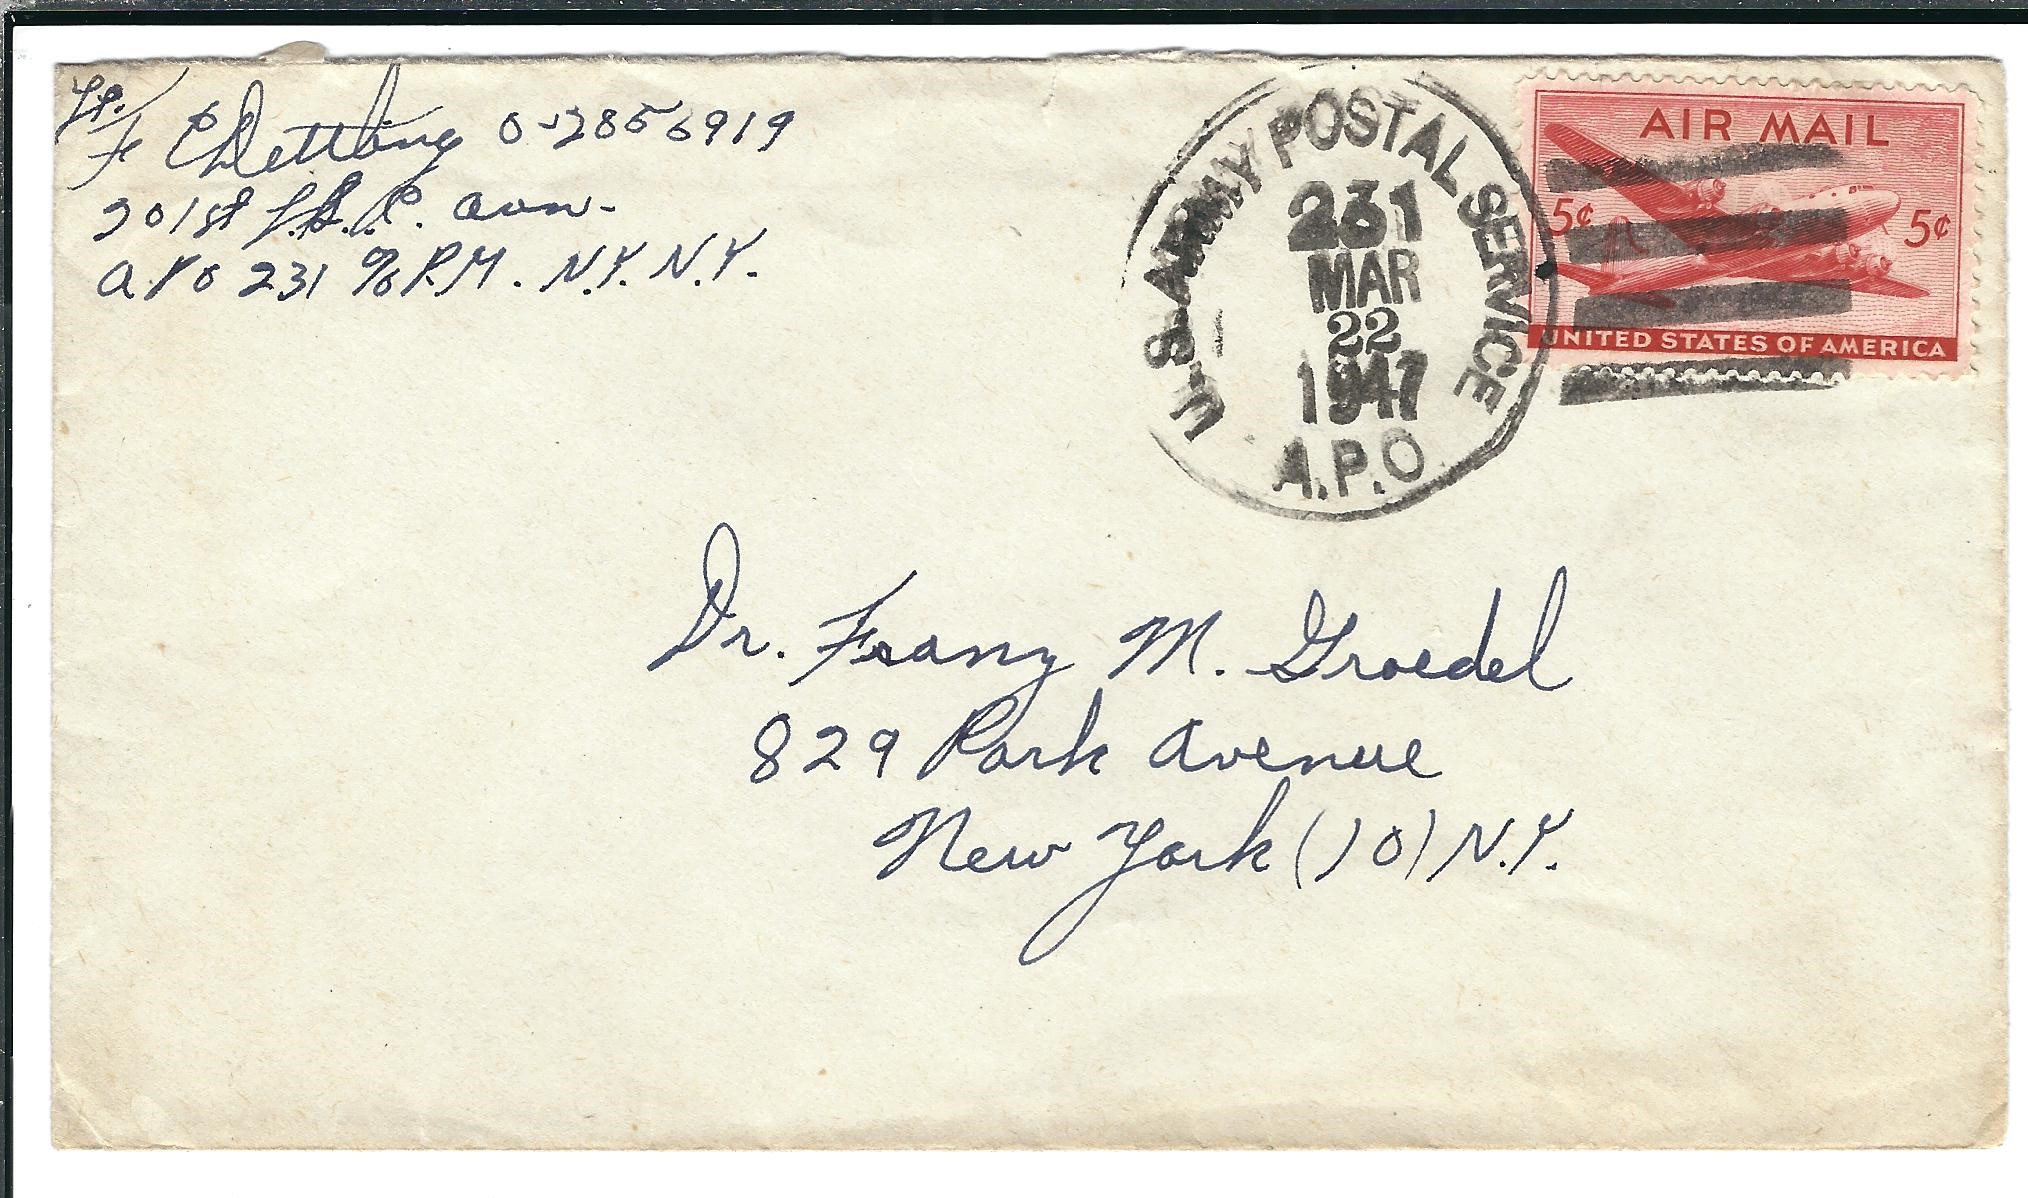 Lt.
F E Dettling O-2856919
201st
A.P.O 231 % P.M. N.Y. N.Y.
U.S. ARMY POSTAL SERVICE
231
MAR
22
1947
A.P.O.
AIR MAIL
5¢ 5¢
UNITED STATES OF AMERICA
Dr. Franz M. Groedel
829 Park Avenue
New York (10) N.Y.